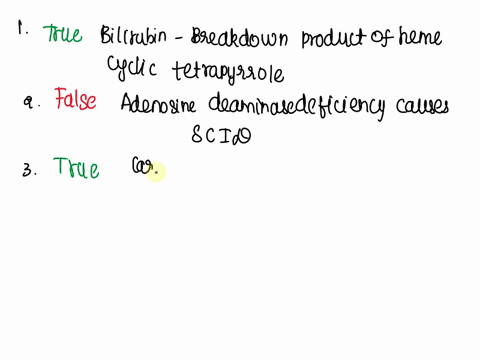 1. True Bilirubin - Breakdown product of heme
Cyclic tetrapyrrole
2. False Adenosine deaminase deficiency causes
SCID
3. True Car